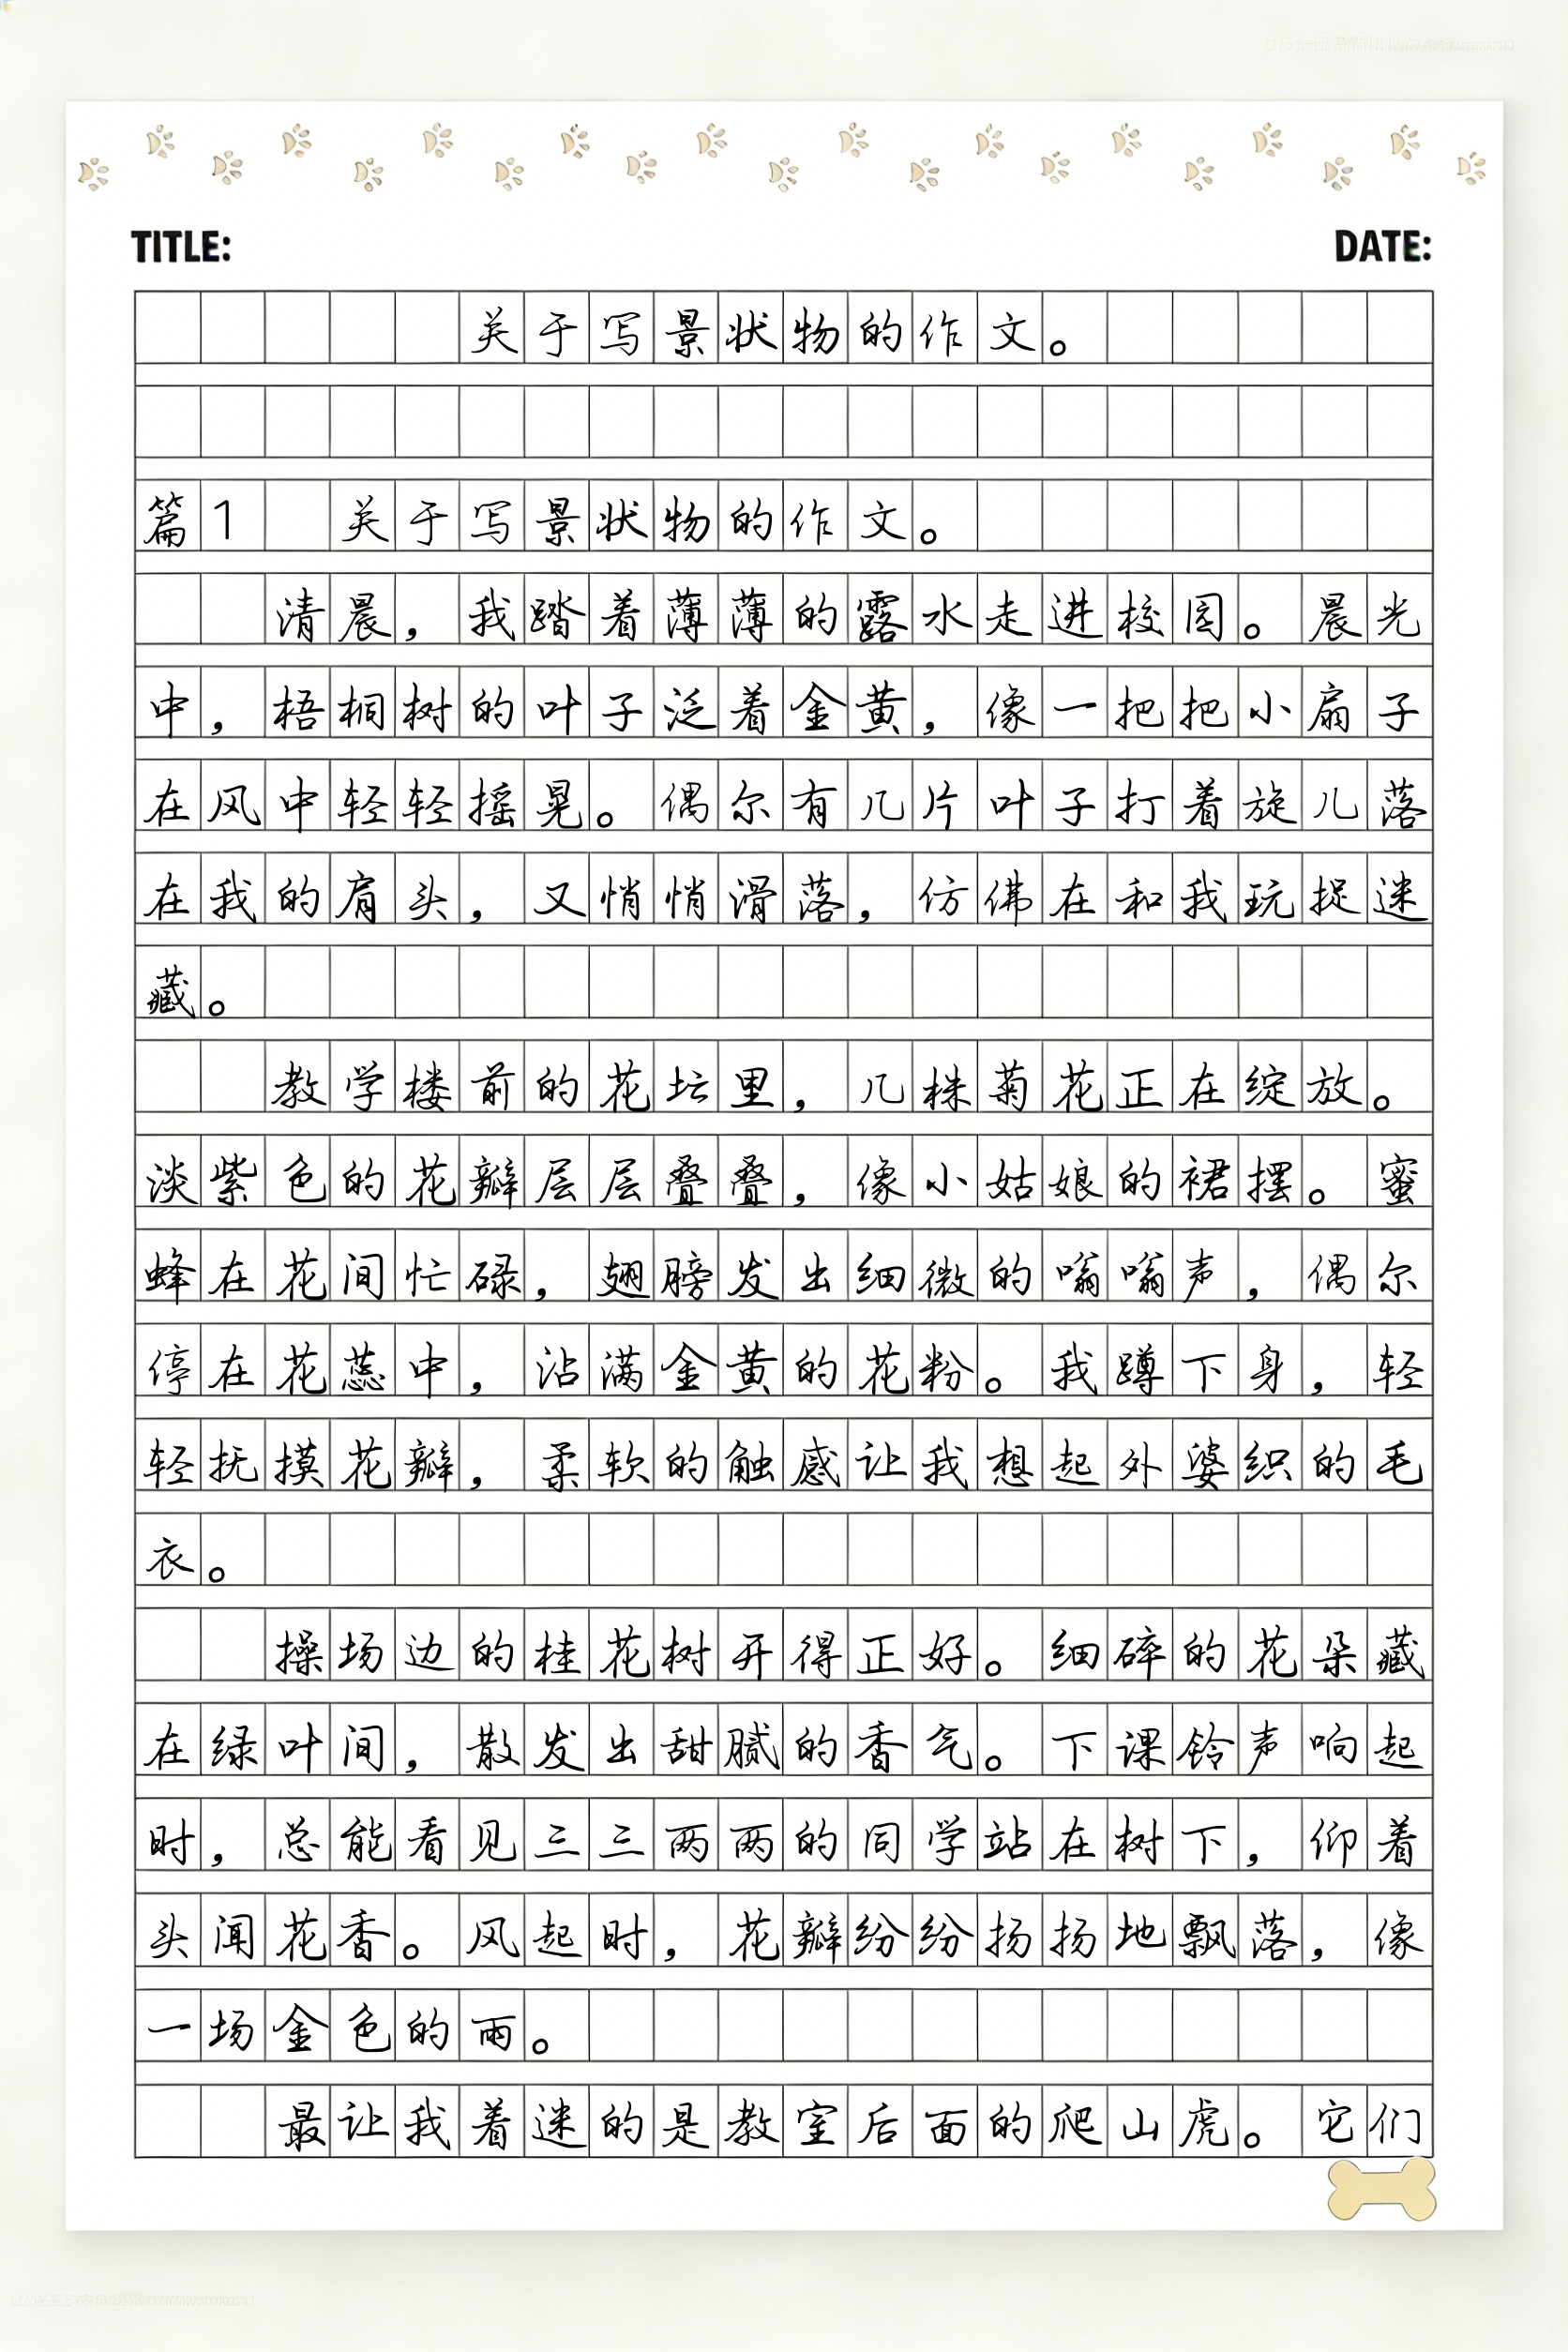 TITLE: DATE:
关于写景状物的作文。
篇1 关于写景状物的作文。
清晨，我踏着薄薄的露水走进校园。晨光
中，梧桐树的叶子泛着金黄，像一把把小扇子
在风中轻轻摇晃。偶尔有几片叶子打着旋儿落
在我的肩头，又悄悄滑落，仿佛在和我玩捉迷
藏。
教学楼前的花坛里，几株菊花正在绽放。
淡紫色的花瓣层层叠叠，像小姑娘的裙摆。蜜
蜂在花间忙碌，翅膀发出细微的嗡嗡声，偶尔
停在花蕊中，沾满金黄的花粉。我蹲下身，轻
轻抚摸花瓣，柔软的触感让我想起外婆织的毛
衣。
操场边的桂花树开得正好。细碎的花朵藏
在绿叶间，散发出甜腻的香气。下课铃声响起
时，总能看见三三两两的同学站在树下，仰着
头闻花香。风起时，花瓣纷纷扬扬地飘落，像
一场金色的雨。
最让我着迷的是教室后面的爬山虎。它们